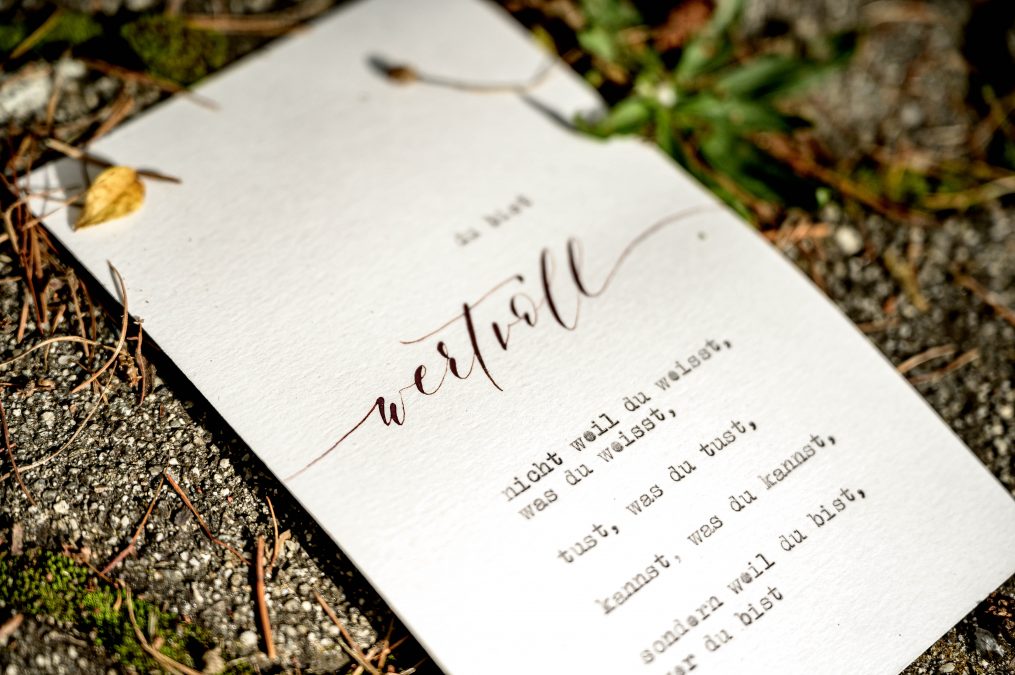 du bist
wertvoll
nicht weil du weisst,
was du weisst,
tust, was du tust,
kannst, was du kannst,
sondern weil du bist,
wer du bist